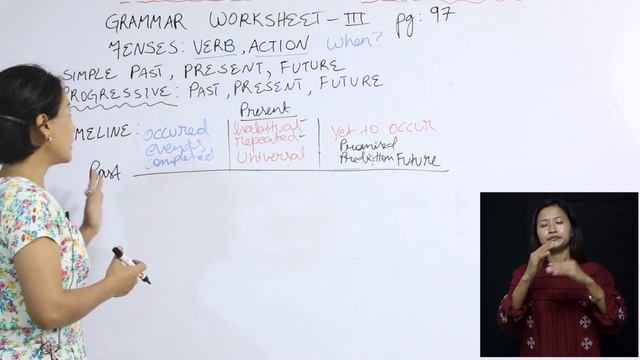 GRAMMAR WORKSHEET-III pg: 97
TENSES: VERB, ACTION When?
SIMPLE PAST, PRESENT, FUTURE
PROGRESSIVE: PAST, PRESENT, FUTURE
Present
TIMELINE: occured habitual yet to occur
events repeated Promised
completed Universal Prediction FUTURE
Past